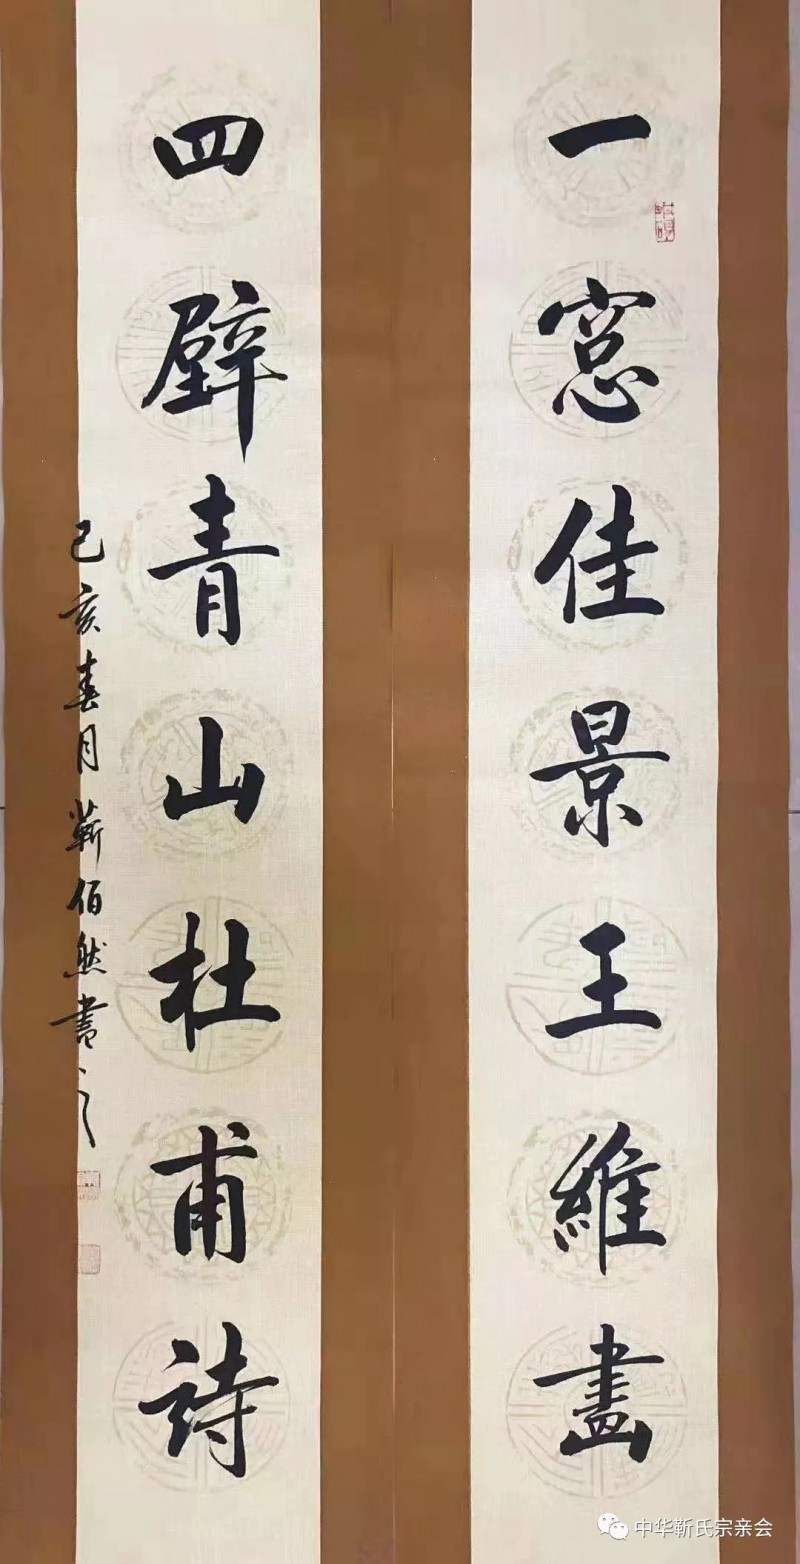 一窓佳景王維畫
四壁青山杜甫詩
己亥春月靳佰然書
中华靳氏宗亲会